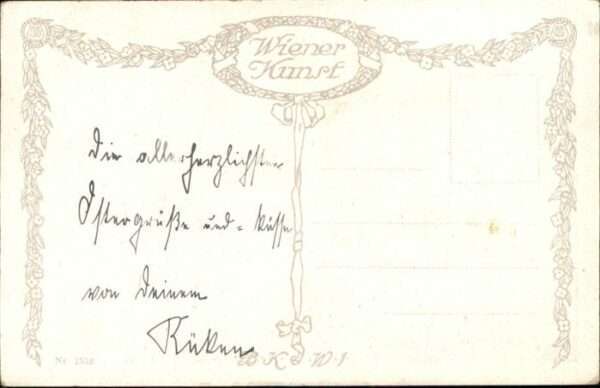 Wiener
Kunst
Die allerherzlichsten
Ostergrüße und - küsse
von Deinem
B.K.W.I